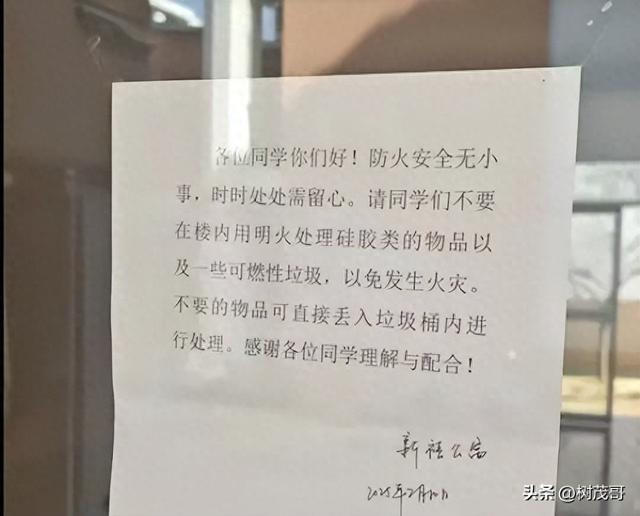 各位同学你们好！防火安全无小
事，时时处处需留心。请同学们不要
在楼内用明火处理硅胶类的物品以
及一些可燃性垃圾，以免发生火灾。
不要的物品可直接丢入垃圾桶内进
行处理。感谢各位同学理解与配合！
新福公寓
2025年2月
头条 @树茂哥